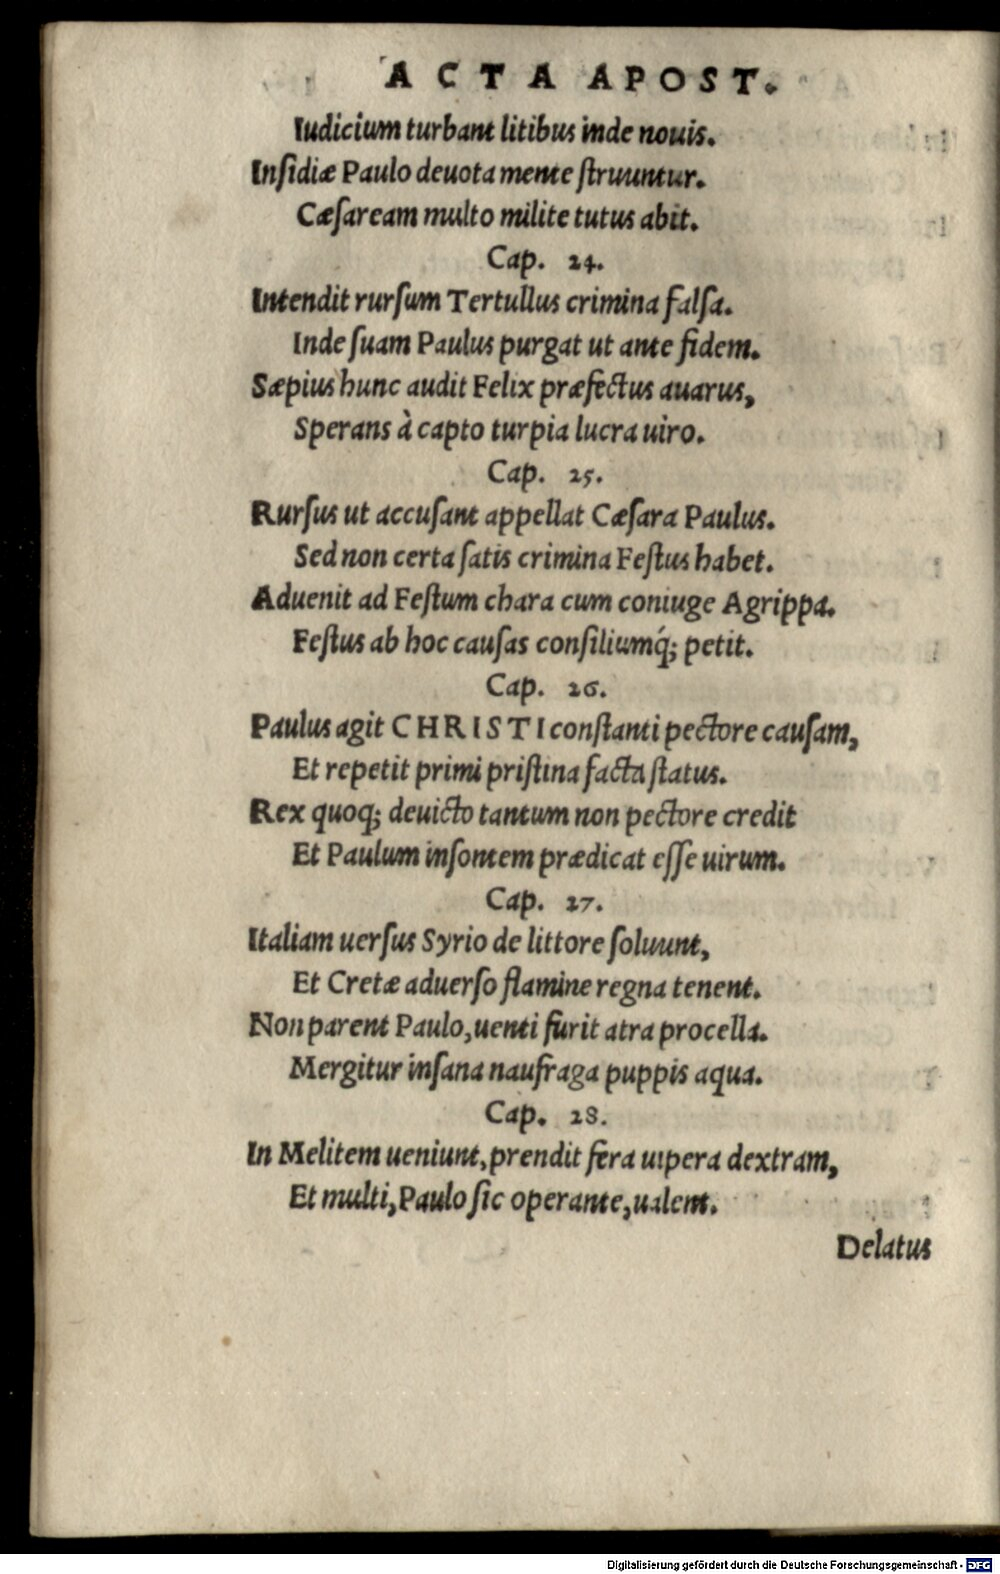 ACTA APOST.
Iudicium turbant litibus inde nouis.
Inſidiæ Paulo deuota mente ſtruuntur.
Cæſaream multo milite tutus abit.
Cap. 24.
Intendit rurſum Tertullus crimina falſa.
Inde ſuam Paulus purgat ut ante fidem.
Sæpius hunc audit Felix præfectus auarus,
Sperans à capto turpia lucra uiro.
Cap. 25.
Rurſus ut accuſant appellat Cæſara Paulus.
Sed non certa ſatis crimina Feſtus habet.
Aduenit ad Feſtum chara cum coniuge Agrippa.
Feſtus ab hoc cauſas conſiliumq́; petit.
Cap. 26.
Paulus agit CHRISTI conſtanti pectore cauſam,
Et repetit primi priſtina facta ſtatus.
Rex quoq; deuicto tantum non pectore credit
Et Paulum inſontem prædicat eſſe uirum.
Cap. 27.
Italiam uerſus Syrio de littore ſoluunt,
Et Cretæ aduerſo flamine regna tenent.
Non parent Paulo, uenti furit atra procella.
Mergitur inſana naufraga puppis aqua.
Cap. 28.
In Melitem ueniunt, prendit fera uipera dextram,
Et multi, Paulo ſic operante, ualent.
Delatus
Digitalisierung gefördert durch die Deutsche Forschungsgemeinschaft - DFG